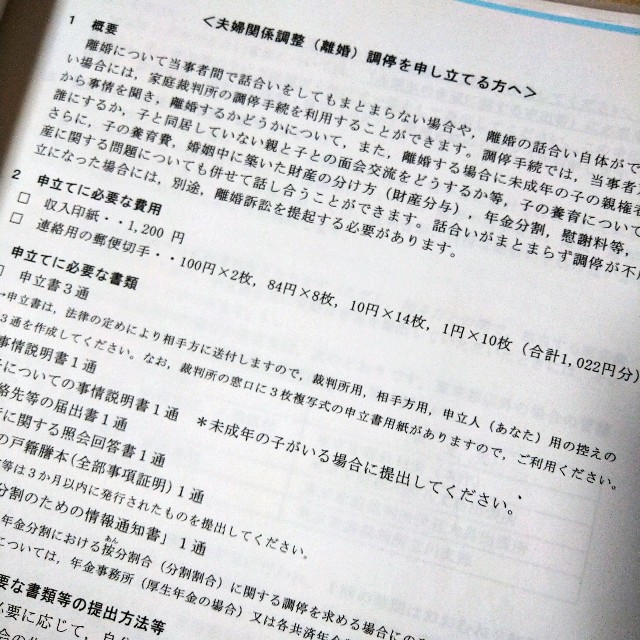 ＜夫婦関係調整（離婚）調停を申し立てる方へ＞
1　概要
離婚について当事者間で話合いをしてもまとまらない場合や，離婚の話合い自体がで
い場合には，家庭裁判所の調停手続を利用することができます。調停手続では，当事者
から事情を聞き，離婚するかどうかについて，また，離婚する場合に未成年の子の親権者
誰にするか，子と同居していない親と子との面会交流をどうするか等，子の養育について
さらに，子の養育費，婚姻中に築いた財産の分け方（財産分与），年金分割，慰謝料等，
産に関する問題についても併せて話し合うことができます。話合いがまとまらず調停が不
立になった場合には，別途，離婚訴訟を提起する必要があります。
2　申立てに必要な費用
□　収入印紙・・1,200 円
□　連絡用の郵便切手・・100円×2枚，84円×8枚，10円×14枚，1円×10枚（合計1,022円分）
申立てに必要な書類
□　申立書３通
申立書は，法律の定めにより相手方に送付しますので，裁判所用，相手方用，申立人（あなた）用の控えの
３通を作成してください。なお，裁判所の窓口に３枚複写式の申立書用紙がありますので，ご利用ください。
事情説明書１通
についての事情説明書１通　＊未成年の子がいる場合に提出してください。
絡先等の届出書１通
に関する照会回答書１通
の戸籍謄本(全部事項証明)１通
等は３か月以内に発行されたものを提出してください。
分割のための情報通知書」１通
年金分割における按分割合（分割割合）に関する調停を求める場合に
あん
については，年金事務所（厚生年金の場合）又は各共済年金
要な書類等の提出方法等
必要に応じて，